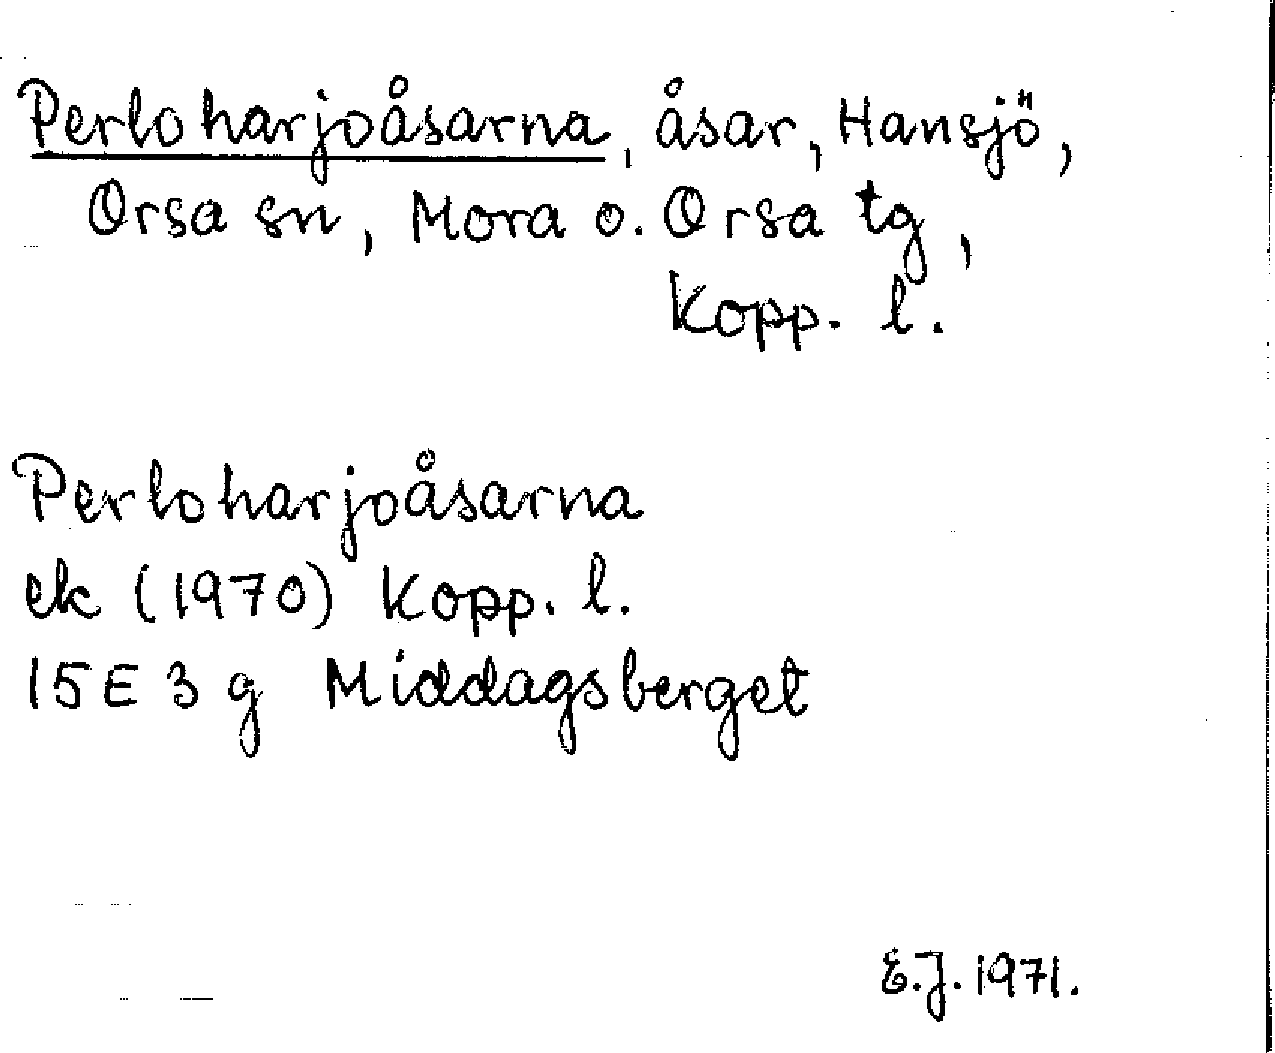 Perloharjoåsarna, åsar, Hansjö,
Orsa sn, Mora o. Orsa tg,
Kopp. l.
Perloharjoåsarna
ek (1970) Kopp. l.
15E 3 g Middagsberget
E.J. 1971.